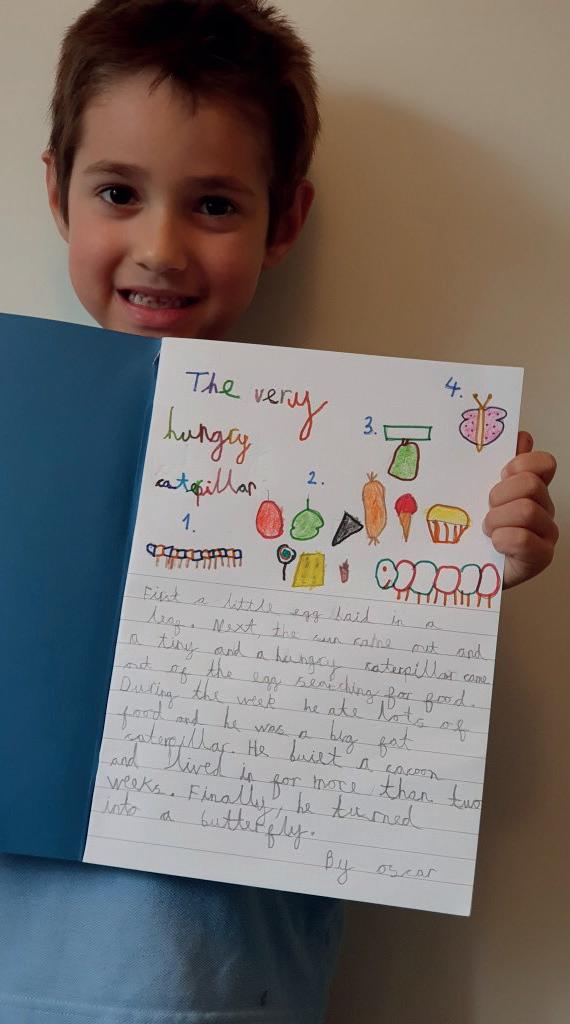 The very
hungry
caterpillar
1.
2.
3.
4.
First a little egg laid in a
leaf. Next, the sun came out and
a tiny and a hungry caterpillar came
out of the egg searching for food.
During the week he ate lots of
food and he was a big fat
caterpillar. He built a cacoon
and lived in for more than two
weeks. Finally, he turned
into a butterfly.
By oscar